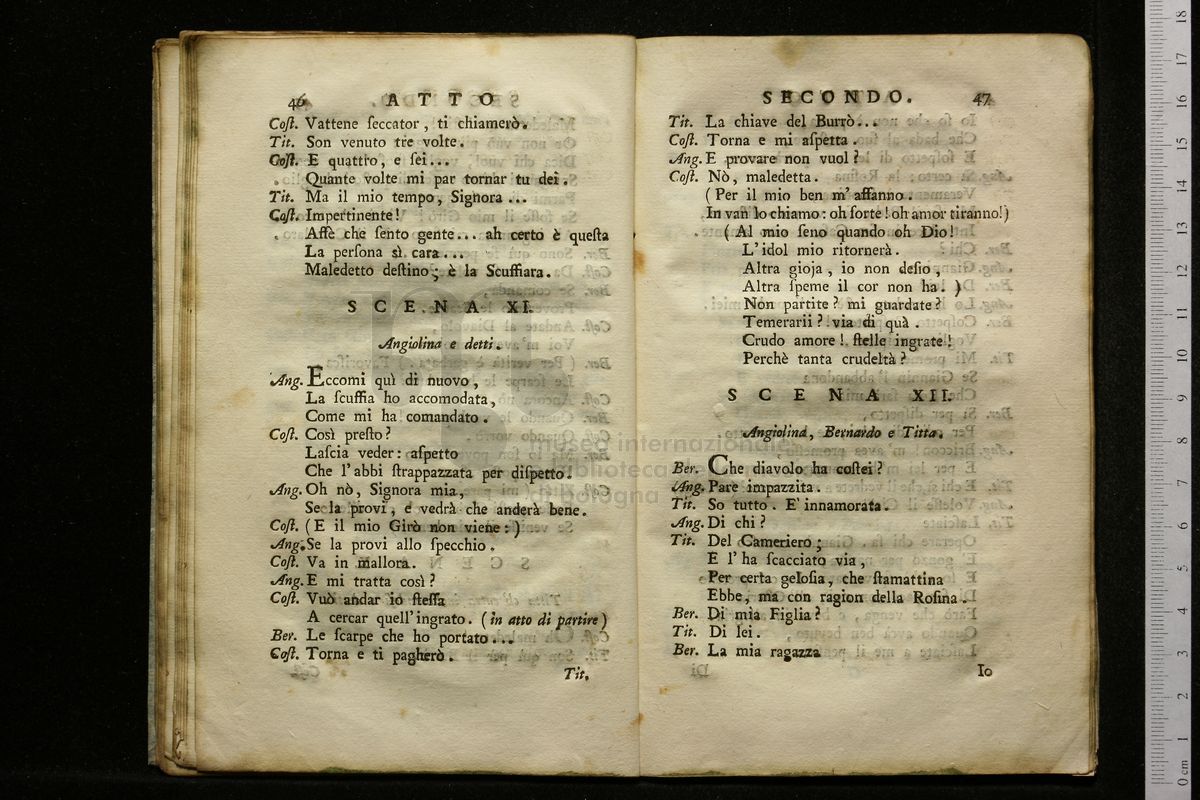 46 ATTO
Cost. Vattene ſeccator, ti chiamerò.
Tit. Son venuto tre volte.
Cost. E quattro, e ſei...
Quante volte mi par tornar tu dei.
Tit. Ma il mio tempo, Signora...
Cost. Impertinente!
Affè che ſento gente... ah certo è queſta
La perſona sì cara...
Maledetto deſtino; è la Scuffiara.
SCENA XI.
Angiolina e detti.
Ang. Eccomi quì di nuovo,
La ſcuffia ho accomodata,
Come mi ha comandato.
Coſt. Così preſto?
Laſcia veder: aſpetto
Che l'abbi ſtrappazzata per diſpetto.
Ang. Oh nò, Signora mia,
Se la provi, e vedrà che anderà bene.
Coſt. (E il mio Girò non viene:)
Ang. Se la provi allo ſpecchio.
Coſt. Va in mallora.
Ang. E mi tratta così?
Coſt. Vuò andar io ſteſſa
A cercar quell'ingrato. (in atto di partire)
Ber. Le ſcarpe che ho portato...
Coſt. Torna e ti pagherò.
Tit.
SECONDO. 47
Tit. La chiave del Burrò...
Coſt. Torna e mi aſpetta.
Ang. E provare non vuol?
Coſt. Nò, maledetta.
(Per il mio ben m'affanno.
In van lo chiamo: oh ſorte! oh amor tiranno!)
(Al mio ſeno quando oh Dio!
L'idol mio ritornerà.
Altra gioja, io non deſio,
Altra ſpeme il cor non ha.)
Non partite? mi guardate?
Temerarii? via di quà.
Crudo amore! ſtelle ingrate!
Perchè tanta crudeltà?
SCENA XII.
Angiolina, Bernardo e Titta.
Ber. Che diavolo ha coſtei?
Ang. Pare impazzita.
Tit. So tutto. E' innamorata.
Ang. Di chi?
Tit. Del Cameriero;
E l'ha ſcacciato via,
Per certa geloſia, che ſtamattina
Ebbe, ma con ragion della Roſina.
Ber. Di mia Figlia?
Tit. Di lei.
Ber. La mia ragazza
Io
museo internazionale
biblioteca de
di bologna
0 cm 1 2 3 4 5 6 7 8 9 10 11 12 13 14 15 16 17 18